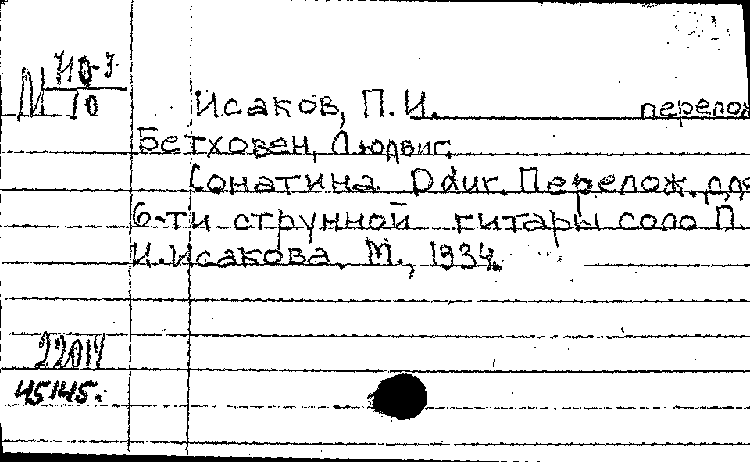 М 710-3
10
Исаков, П. И. перелож
Бетховен, Людвиг.
Сонатина Ddur. Перелож. для
6-ти струнной гитары соло П.
И. Исакова. М., 1934.
22014
45145.